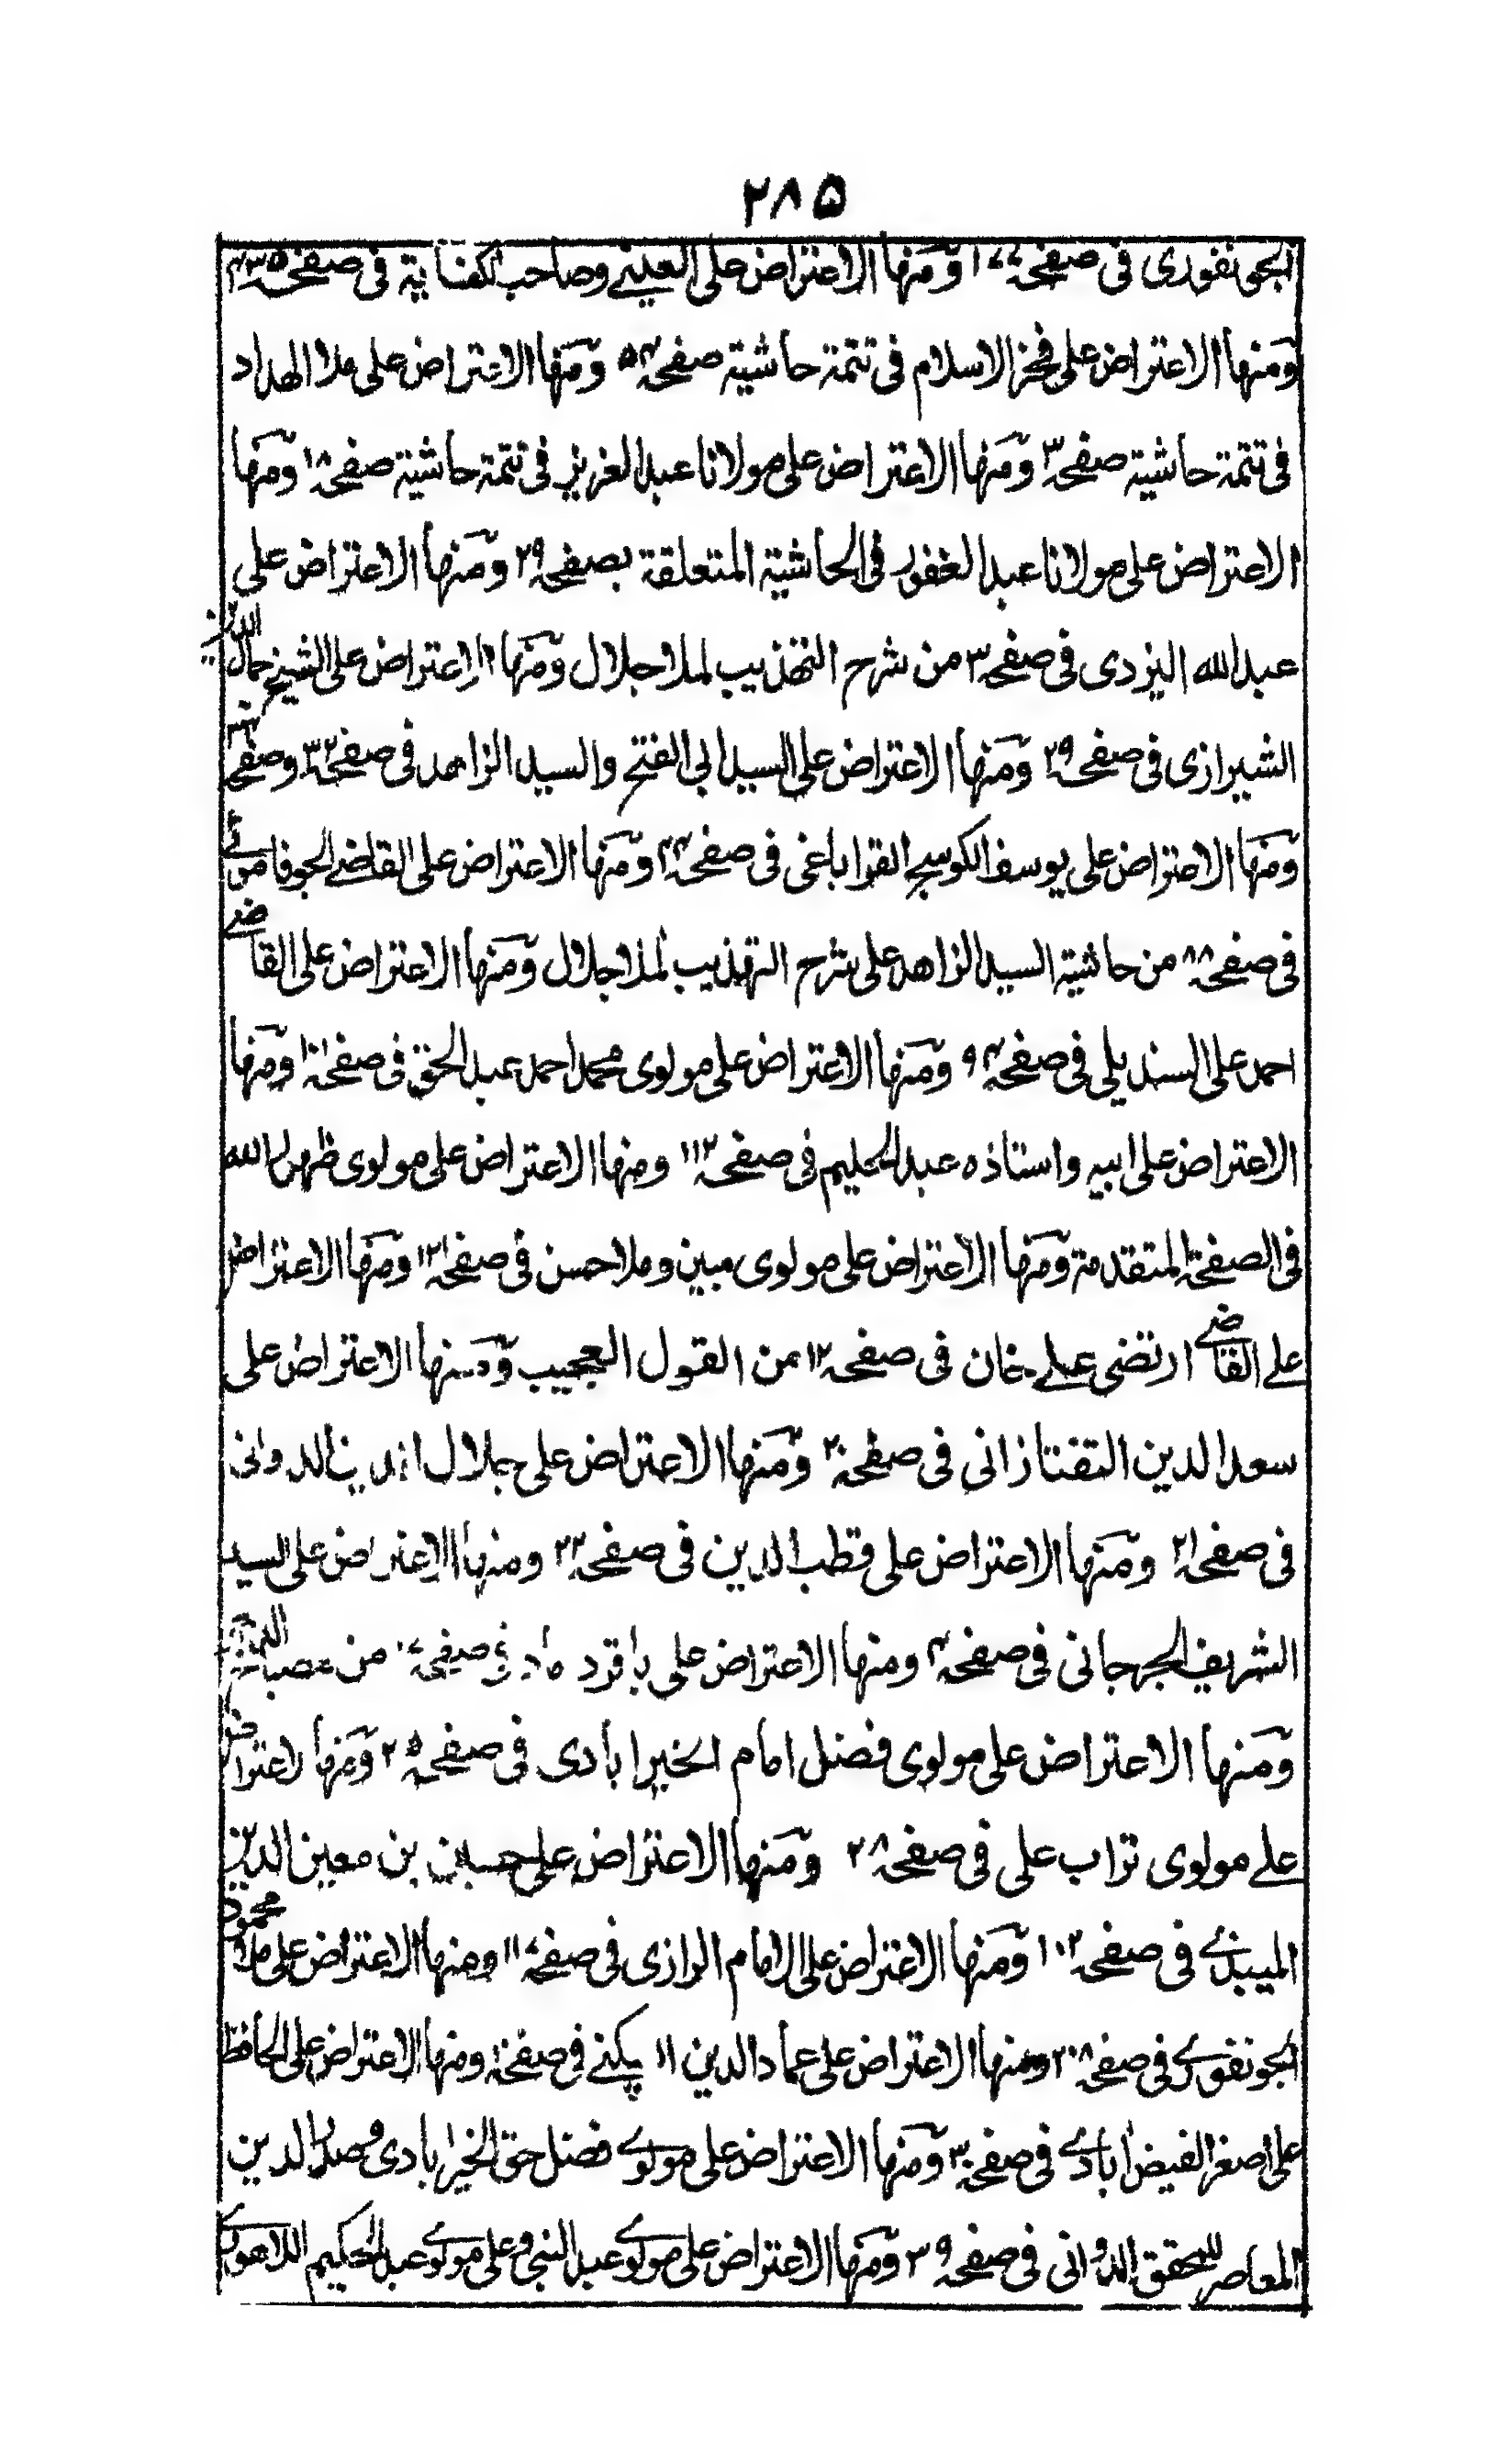 ۲۸۵
الجونفوری فی صفحہ ۱۷۷ ومنها الاعتراض علی العینے وصاحب الکفایۃ فی صفحہ ۴۳۵
ومنها الاعتراض علی فخر الاسلام فی تتمۃ حاشیۃ صفحہ ۵۴ ومنها الاعتراض علی ملا الهداد
فی تتمۃ حاشیۃ صفحہ ۳ ومنها الاعتراض علی مولانا عبد العزیز فی تتمۃ حاشیۃ صفحہ ۱۸ ومنها
الاعتراض علی مولانا عبد الغفور فی الحاشیۃ المتعلقۃ بصفحہ ۲۹ ومنها الاعتراض علی
عبد الله الیزدی فی صفحہ ۳ من شرح التهذیب لملا جلال ومنها الاعتراض علی الشیخ جمال الدین
الشیرازی فی صفحہ ۲۹ ومنها الاعتراض علی السید ابی الفتح والسید الزاهد فی صفحہ ۳۲ وصفحہ
ومنها الاعتراض علی یوسف الکوسج القراباغی فی صفحہ ۴۴ ومنها الاعتراض علی القاضے الجوفاموے
فی صفحہ ۸۸ من حاشیۃ السید الزاهد علی شرح التهذیب لملا جلال ومنها الاعتراض علی القاضے
احمد علی السندیلی فی صفحہ ۹۴ ومنها الاعتراض علی مولوی محمد احمد عبد الحق فی صفحہ ۱۰۱ ومنها
الاعتراض علی ابیه واستاذه عبد الحلیم فی صفحہ ۱۱۲ ومنها الاعتراض علی مولوی ظهور الله
فی الصفحۃ المتقدمۃ ومنها الاعتراض علی مولوی مبین وملا حسن فی صفحہ ۱۲۱ ومنها الاعتراض
علے القاضے ارتضی علے خان فی صفحہ ۱۲ من القول العجیب ومنها الاعتراض علی
سعد الدین التفتازانی فی صفحہ ۲۰ ومنها الاعتراض علی جلال الدین الدوانی
فی صفحہ ۲۱ ومنها الاعتراض علی قطب الدین فی صفحہ ۲۳ ومنها الاعتراض علی السید
الشریف الجرجانی فی صفحہ ۴ ومنها الاعتراض علی باقر داماد فی صفحہ من مصباح
ومنها الاعتراض علی مولوی فضل امام الخیرابادی فی صفحہ ۲۵ ومنها الاعتراض
علے مولوی تراب علی فی صفحہ ۲۸ ومنها الاعتراض علی حسین بن معین الدین
المیبذے فی صفحہ ۱۰۲ ومنها الاعتراض علی الامام الرازی فی صفحہ ۱۱۷ ومنها الاعتراض علی ملا محمود
الجونفوری فی صفحہ ۲۰۸ ومنها الاعتراض علی عماد الدین اللبکنے فی صفحہ ومنها الاعتراض علی الحافظ
علی اصغر الفیض ابادے فی صفحہ ۳۰ ومنها الاعتراض علی مولوے فضل حق الخیرابادی وصدر الدین
المعاصر للمحقق الدوانی فی صفحہ ۳۹ ومنها الاعتراض علی مولوے عبد النبی وعلی مولوے عبد الحکیم اللاهوری